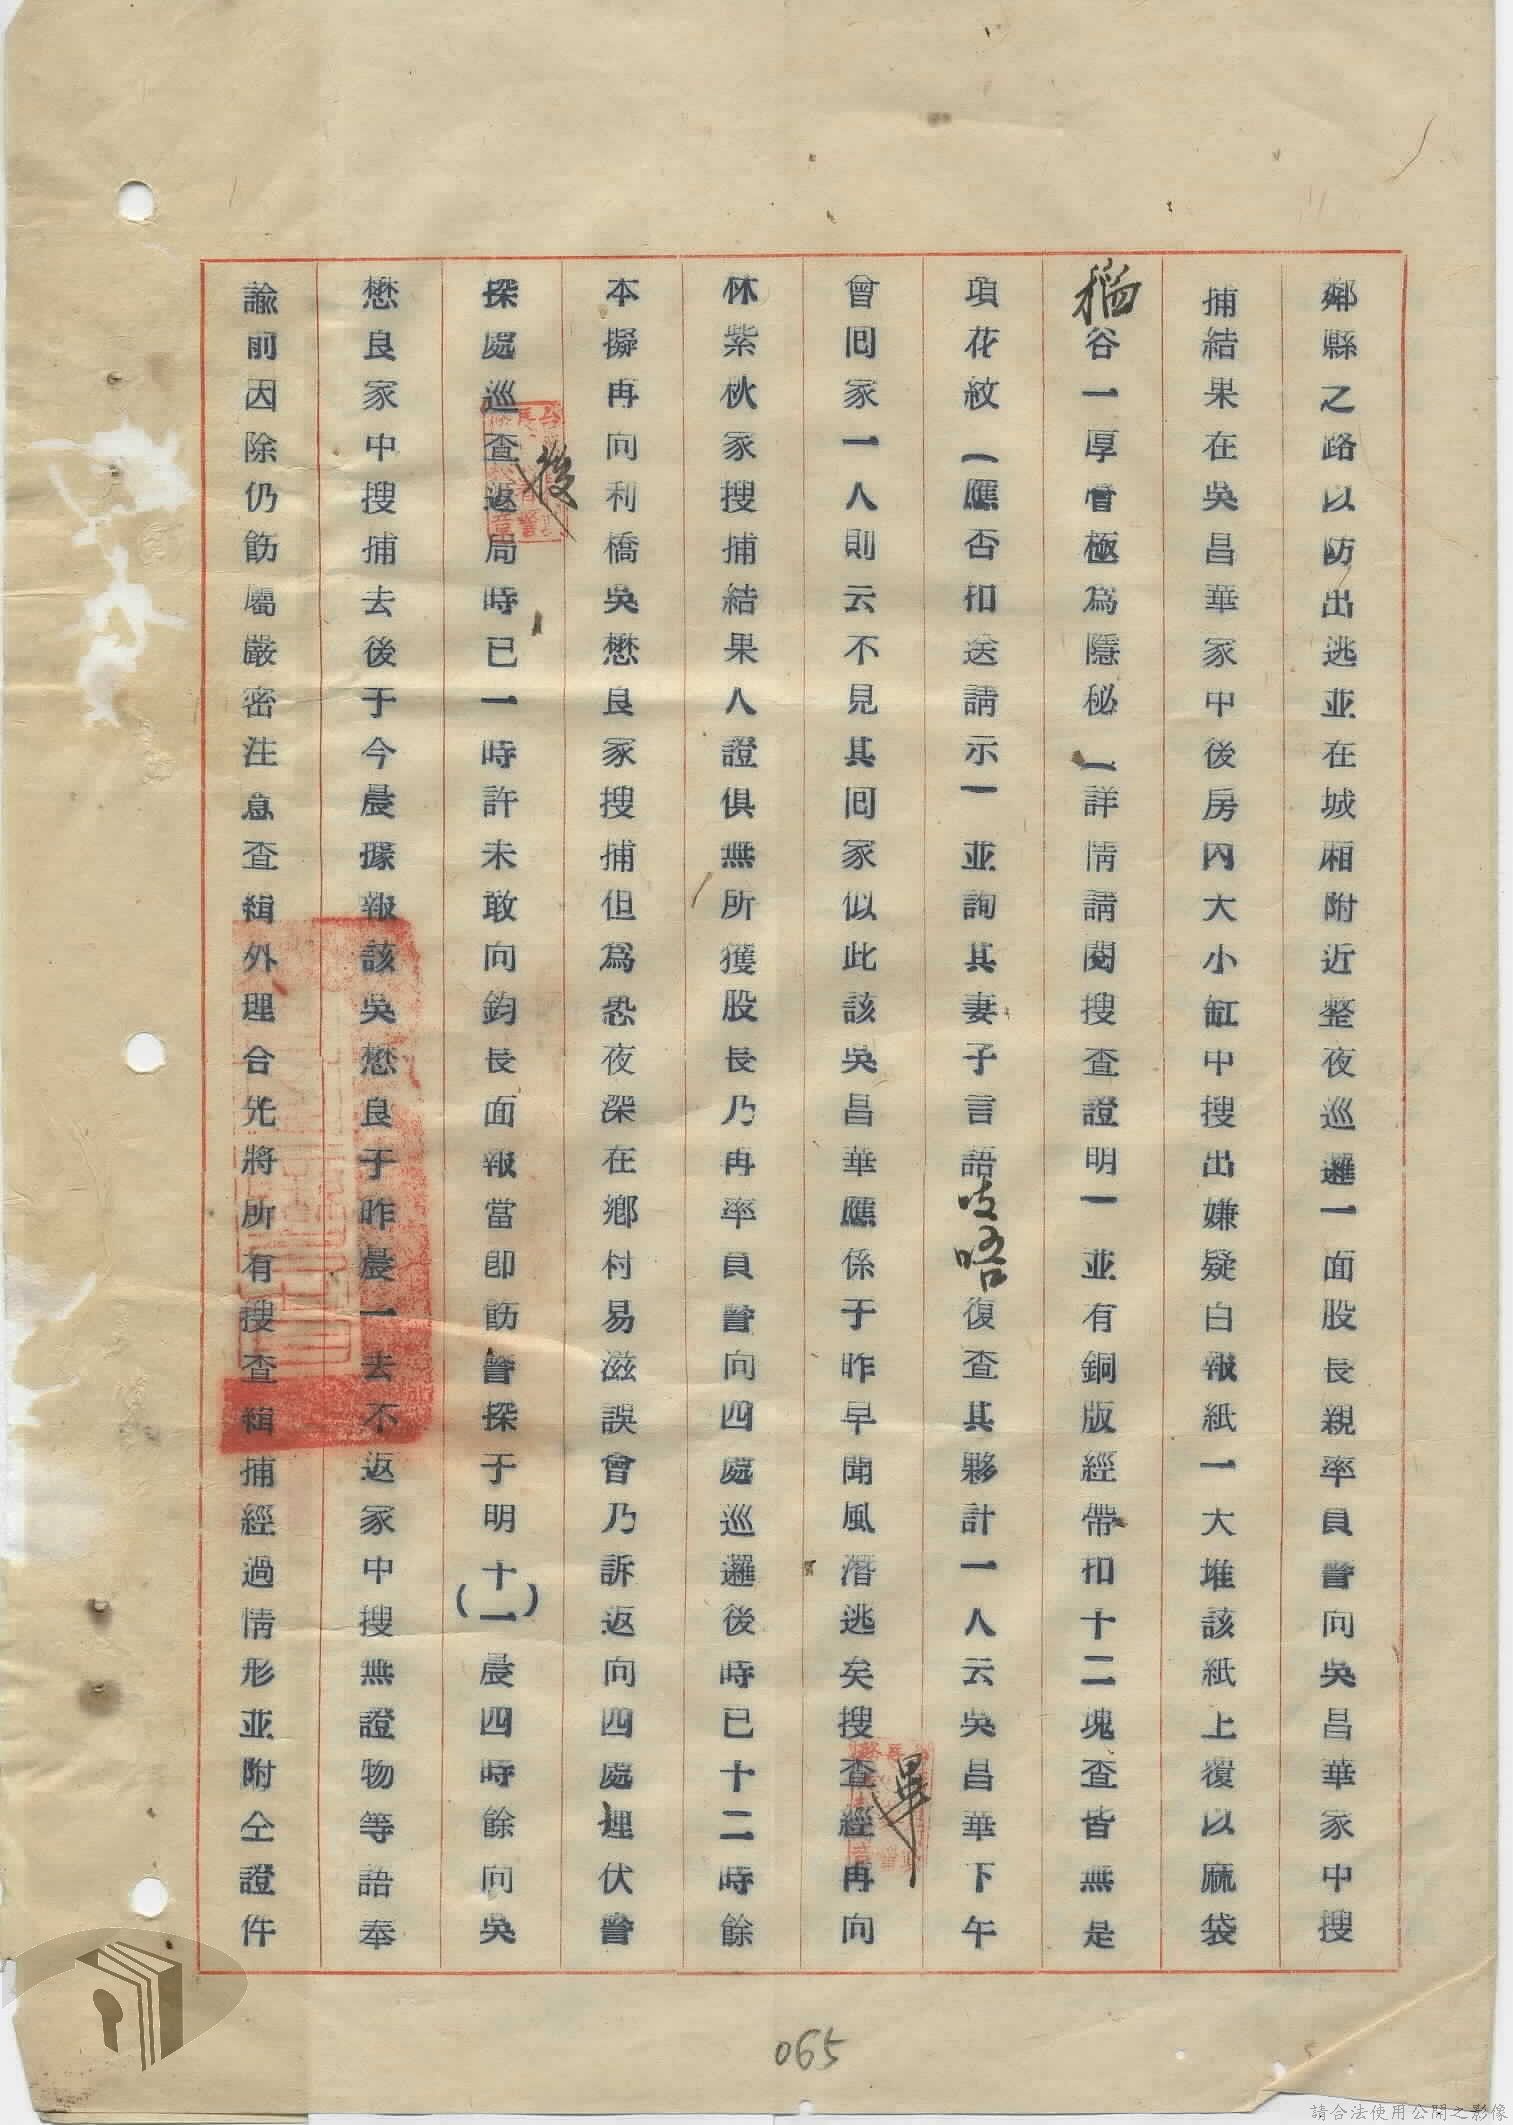 鄰縣之路以防出逃並在城廂附近整夜巡邏一面股長親率員警向吳昌華家中搜
捕結果在吳昌華家中後房內大小缸中搜出嫌疑白報紙一大堆該紙上覆以麻袋
稻谷一厚層極爲隱秘（詳情請閱搜查證明）並有銅版經帶扣十二塊查皆無是
項花紋（應否扣送請示）並詢其妻子言語吱唔復查其夥計一人云吳昌華下午
曾回家一人則云不見其回家似此該吳昌華應係于昨早聞風潛逃矣搜查經畢再向
林紫秋家搜捕結果人證俱無所獲股長乃再率員警向四處巡邏後時已十二時餘
本擬再向利橋吳懋良家搜捕但爲恐夜深在鄉村易滋誤會乃訴返向四處埋伏警
探處巡查後返局時已一時許未敢向鈞長面報當卽飭警探于明（十一）晨四時餘向吳
懋良家中搜捕去後于今晨據報該吳懋良于昨晨一去不返家中搜無證物等語奉
諭前因除仍飭屬嚴密注意查緝外理合先將所有搜查緝捕經過情形並附仝證件
065
請合法使用公開之影像